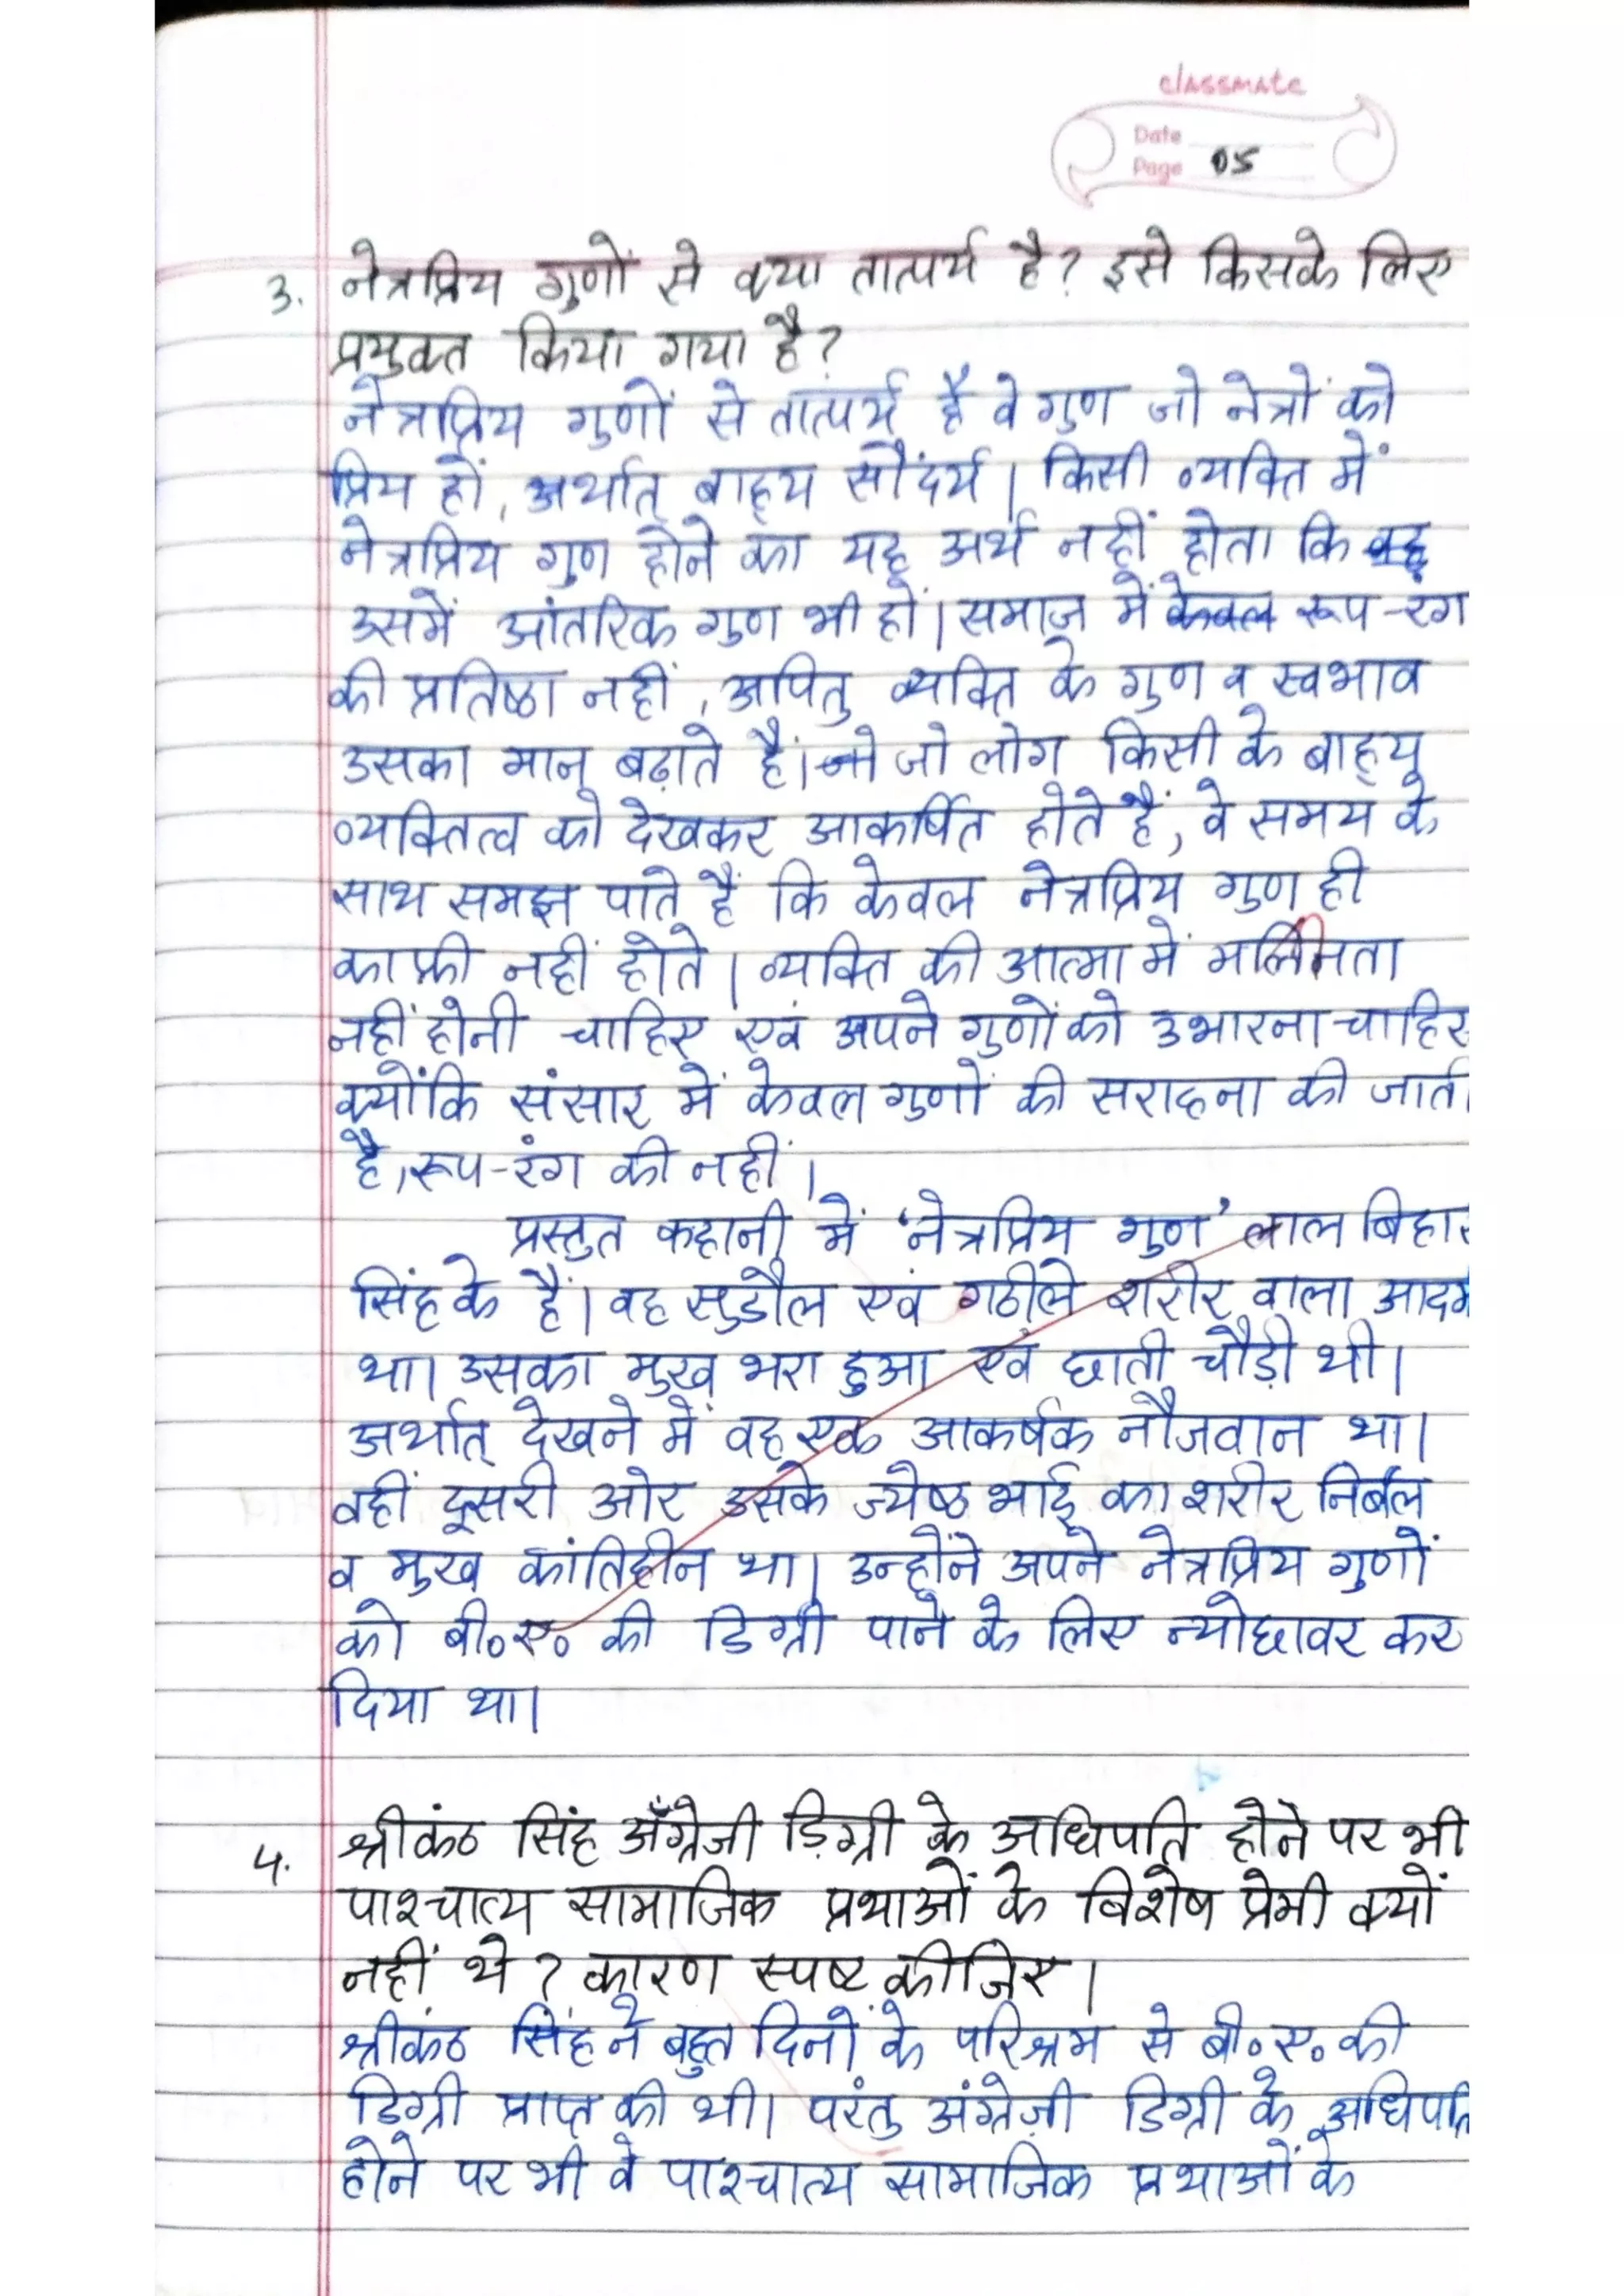 classmate
Date
Page 05
3. नेत्रप्रिय गुणों से क्या तात्पर्य है? इसे किसके लिए
प्रयुक्त किया गया है?
नेत्रप्रिय गुणों से तात्पर्य है वे गुण जो नेत्रों को
प्रिय हों, अर्थात् बाह्य सौंदर्य। किसी व्यक्ति में
नेत्रप्रिय गुण होने का यह अर्थ नहीं होता कि
उसमें आंतरिक गुण भी हों। समाज में केवल रूप-रंग
की प्रतिष्ठा नहीं, अपितु व्यक्ति के गुण व स्वभाव
उसका मान बढ़ाते हैं। जो लोग किसी के बाह्य
व्यक्तित्व को देखकर आकर्षित होते हैं, वे समय के
साथ समझ पाते हैं कि केवल नेत्रप्रिय गुण ही
काफ़ी नहीं होते। व्यक्ति की आत्मा में मलिनता
नहीं होनी चाहिए एवं अपने गुणों को उभारना चाहिए
क्योंकि संसार में केवल गुणों की सराहना की जाती
है, रूप-रंग की नहीं।
प्रस्तुत कहानी में 'नेत्रप्रिय गुण' लाल बिहार
सिंह के हैं। वह सुडौल एवं गठीले शरीर वाला आदम
था। उसका मुख भरा हुआ एवं छाती चौड़ी थी।
अर्थात् देखने में वह एक आकर्षक नौजवान था।
वहीं दूसरी ओर उसके ज्येष्ठ भाई का शरीर निर्बल
व मुख कांतिहीन था। उन्होंने अपने नेत्रप्रिय गुणों
को बी०ए० की डिग्री पाने के लिए न्योछावर कर
दिया था।
4. श्रीकंठ सिंह अँग्रेजी डिग्री के अधिपति होने पर भी
पाश्चात्य सामाजिक प्रथाओं के विशेष प्रेमी क्यों
नहीं थे? कारण स्पष्ट कीजिए।
श्रीकंठ सिंह ने बहुत दिनों के परिश्रम से बी०ए० की
डिग्री प्राप्त की थी। परंतु अंग्रेज़ी डिग्री के अधिपति
होने पर भी वे पाश्चात्य सामाजिक प्रथाओं के